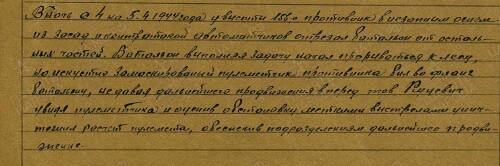 В ночь с 4 на 5.4.1944 года у высоты 156.0 противник внезапным огнем
из засад и контратакой автоматчиков отрезал батальон от осталь-
ных частей. Батальон выполняя задачу начал прорываться к лесу,
но искустно замаскированый пулеметчик противника бил во фланг
батальону, не давая дальнейшего продвижения вперед тов.
увидя пулеметчика и оценив обстановку меткими выстрелами унич-
тожил расчет пулемета, обеспечив подразделениям дальнейшее продви-
жение.